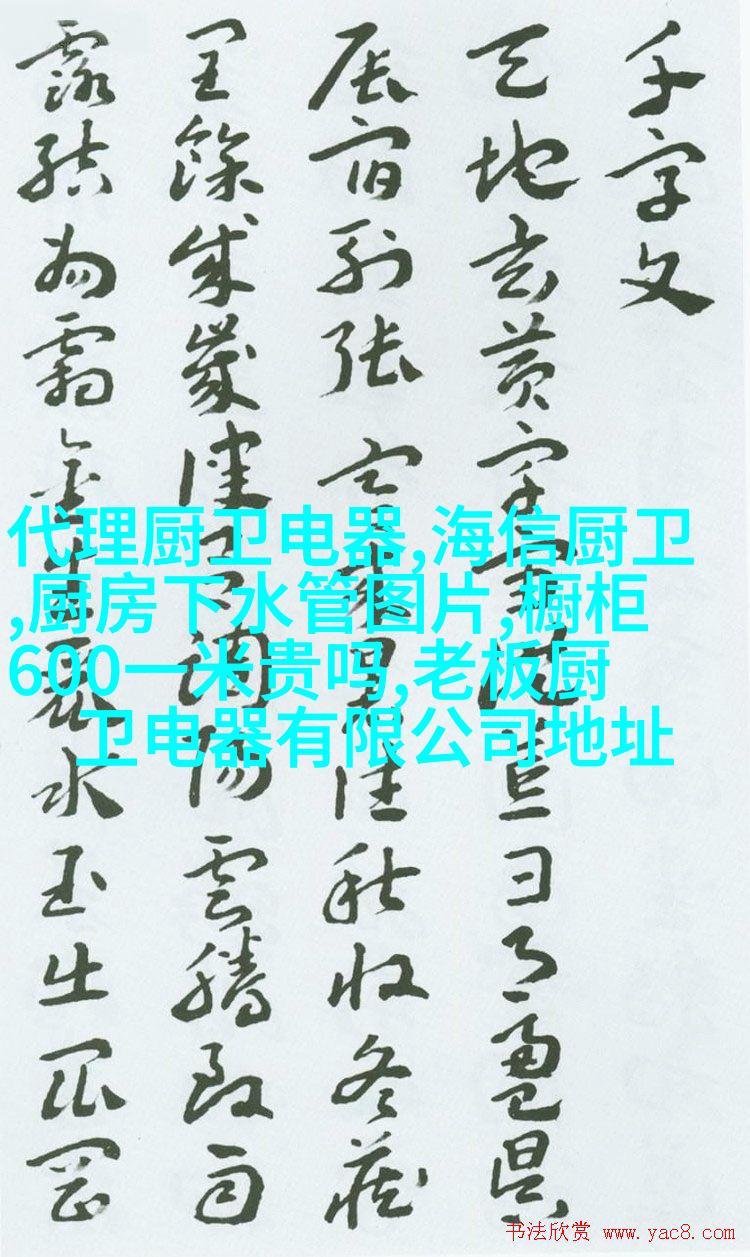 千字文
天地玄黄宇宙洪荒日月盈昃
辰宿列張寒来暑往秋收冬藏
閏餘成歲律吕調陽雲騰致雨
露結為霜金生麗水玉出崑岡
代理厨卫电器,海信厨卫
,厨房下水管图片,橱柜
600一米贵吗,老板厨
卫电器有限公司地址
书法欣赏 www.yac8.com